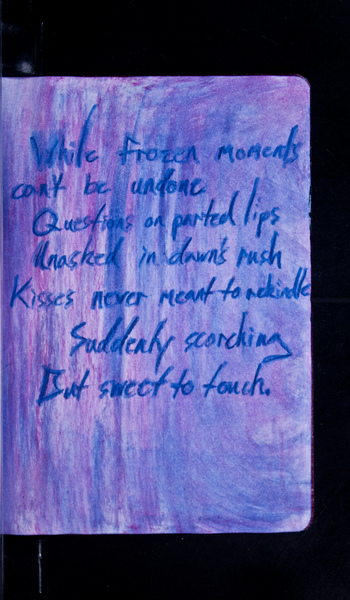 While frozen moments
can't be undone
Questions on parted lips
Unasked in dawn's rush
Kisses never meant to rekindle
Suddenly scorching
But sweet to touch.